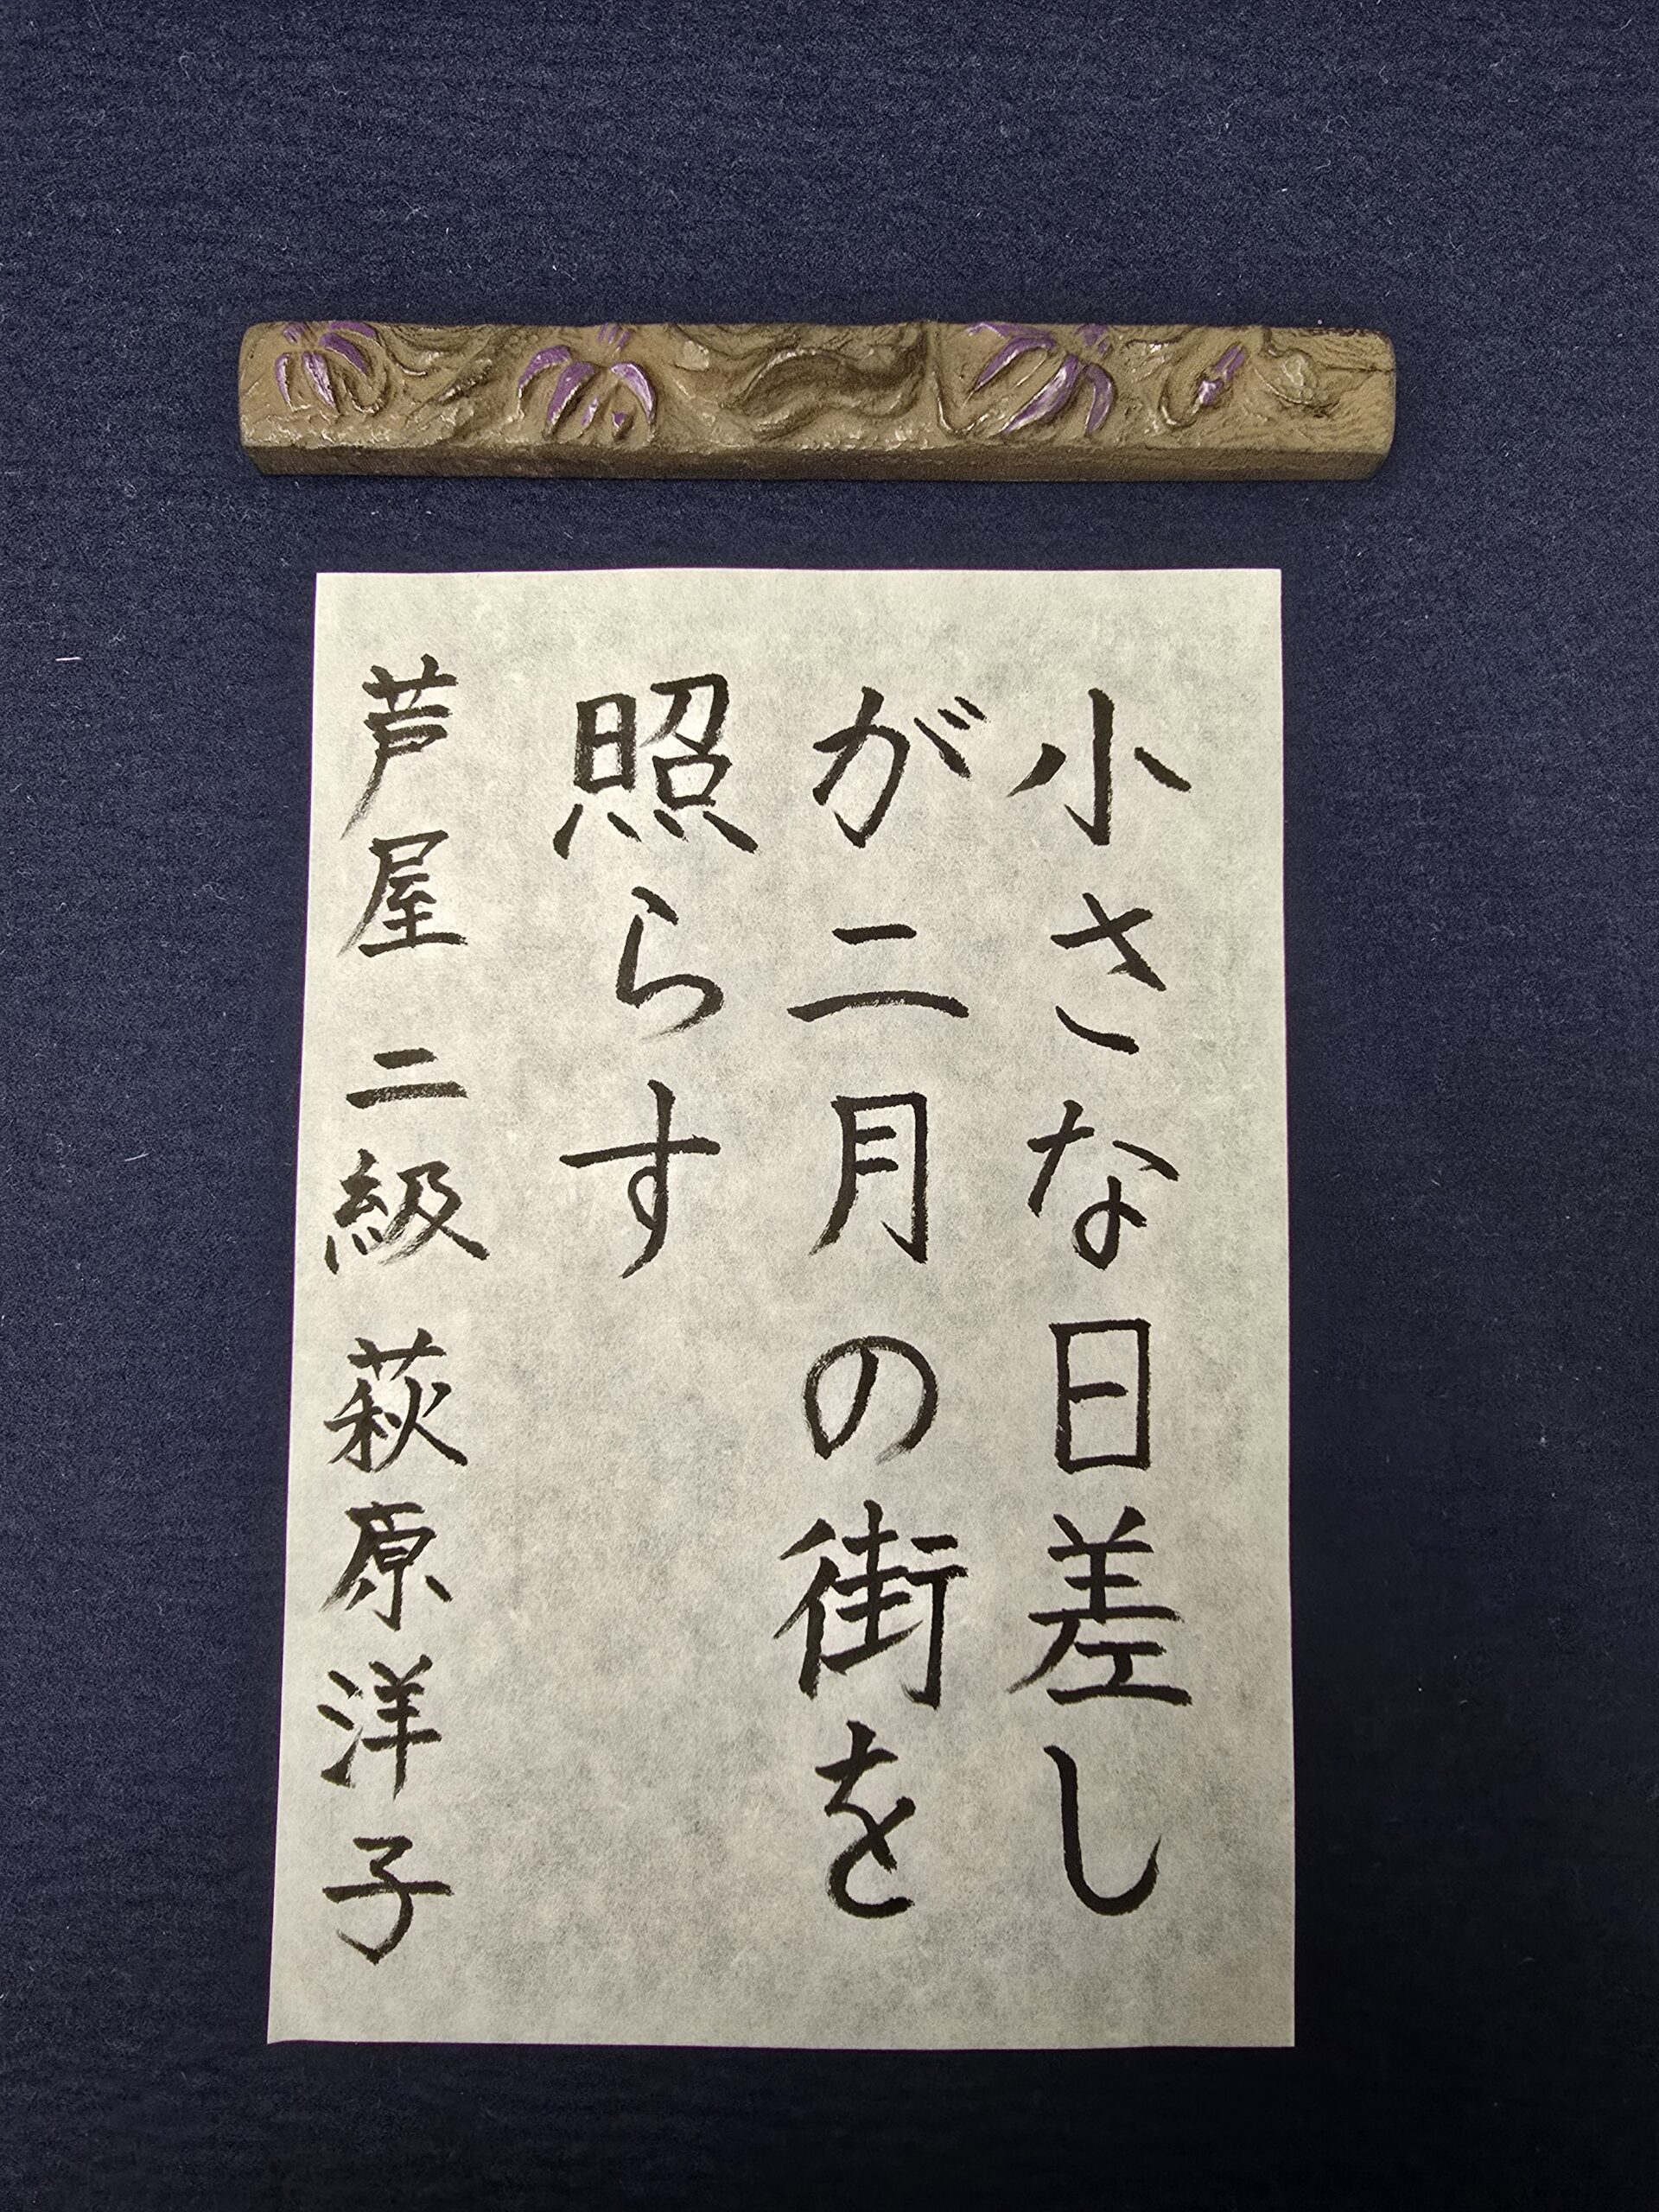 小さな日差し
が二月の街を
照らす
芦屋 二級 萩原洋子